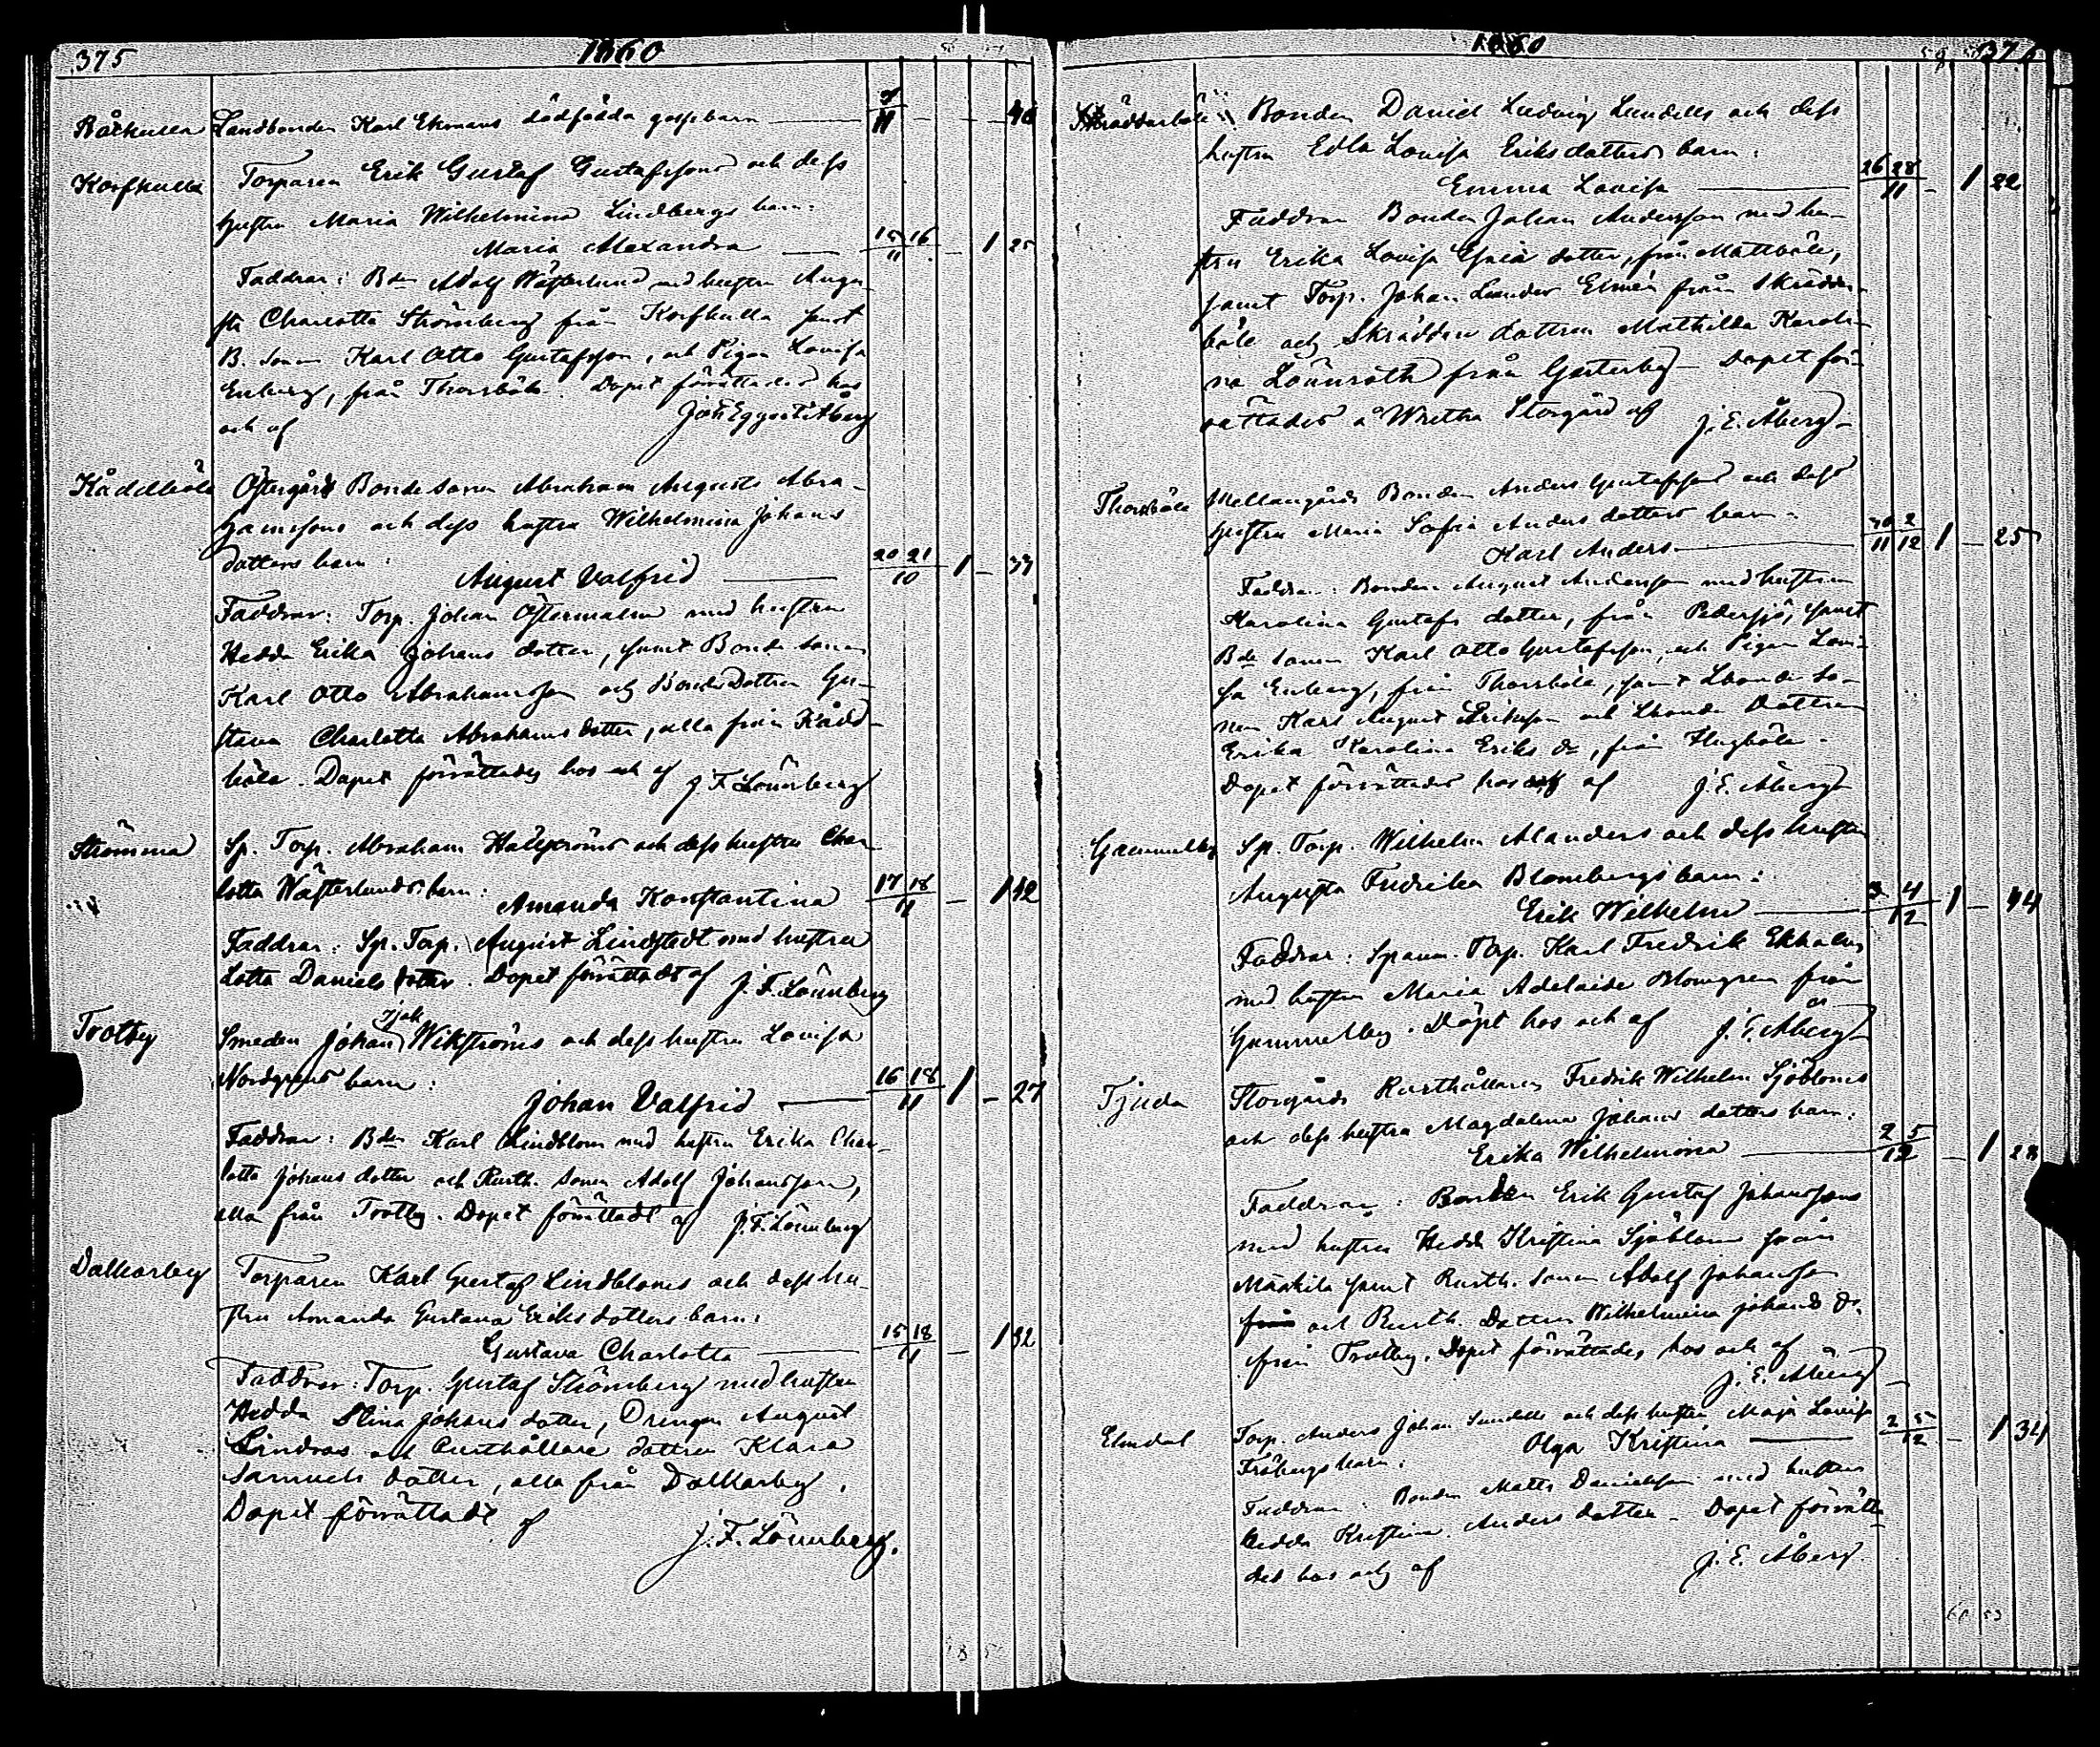 375 1860
Råckulla Landbonden Karl Ekmans dödfödda gossebarn 7/11 40
Korfkulla Torparen Erik Gustaf Gustafssons och dess
hustru Maria Wilhelmina Lindbergs barn:
Maria Alexandra 15/11 16 1 25
Faddrar: Bdn Adolf Wässterlund med hustru Augu-
sta Charlotta Strömberg från Korfkulla samt
B. sonen Karl Otto Gustafsson, och Pigan Lovisa
Enberg, från Thorsböle. Dopet förrättades hos
och af Joh Eggert Åberg
Kåddböle Östergårds Bonde sonen Abraham Augusts Abra-
hamssons och dess hustru Wilhelmina Johans
dotters barn:
August Valfrid 20 21/10 1 – 33
Faddrar: Torp. Johan Östermalm med hustru
Hedda Erika Johans dotter, samt Bonde sonen
Karl Otto Abrahamsson och Bonde Dottren Gu-
stava Charlotta Abrahams dotter, alla från Kådd-
böle. Dopet förrättades hos och af J F Lönnberg
Strömma Sp. Torp. Abraham Hällströms och dess hustru Char-
lotta Wässterlunds barn:
Amanda Konstantina 17 18/11 – 1 42
Faddrar: Sp. Torp. August Lindstedt med hustru
Lotta Daniels dotter. Dopet förrättadt af J. F. Lönnberg
Trotby Smeden Johan Isak Wikströms och dess hustru Lovisa
Nordgrens barn:
Johan Valfrid 16 18/11 1 – 27
Faddrar: Bdn Karl Lindblom med hustru Erika Char-
lotta Johans dotter och Rusth. sonen Adolf Johansson,
alla från Trotby. Dopet förrättadt af J. F. Lönnberg
Dalkarby Torparen Karl Gustaf Lindbloms och dess hu-
stru Amanda Gustava Eriks dotters barn:
Gustava Charlotta 15 18/11 – 1 32
Faddrar: Torp. Gustaf Strömberg med hustru
Hedda Stina Johans dotter, Drengen August
Lindroos och Rusthållare dottren Klara
Samuels dotter, alla från Dalkarby.
Dopet förrättadt af
J. F. Lönnberg.
1860 376
Skräddarböle Bonden Daniel Ludvig Lundells och dess
hustru Edla Lovisa Eriks dotters barn:
Emma Lovisa 26 28/11 – 1 22
Faddrar Bonden Johan Andersson med hu-
stru Erika Lovisa dotter, från Mattböle,
samt Torp. Johan Leander Elmén från Skräddar-
böle och Skräddare dottren Mathilda Karoli-
na Lönnroth från Gesterby – Dopet för-
rättades å Wretha Storgård af J. E. Åberg
Thorsböle Mellangårds Bonden Anders Gustafssons och dess
hustru Maria Sofia Anders dotters barn –
Karl Anders 30/11 2/12 1 – 25
Faddrar: Bonden August Andersson med hustru
Karolina Gustafs dotter, från Pedersjö, samt
Bde sonen Karl Otto Gustafsson, och Pigan Lovi-
sa Enberg, från Thorsböle, samt Lbonde so-
nen Karl August Eriksson och Lbonde Dottren
Erika Karolina Eriks dr, från Hugböle –
Dopet förrättades hos och af J. E. Åberg
Gammelby Sp. Torp. Wilhelm Alanders och dess hustru
Augusta Fredrika Blombergs barn:
Erik Wilhelm 3 4/12 1 – 44
Faddrar: Spanm. Torp. Karl Fredrik Ekholm
med hustru Maria Adelaide Blomgren från
Gammelby. Döpt hos och af J. E. Åberg
Tjuda Storgårds Rusthållaren Fredrik Wilhelm Sjöbloms
och dess hustru Magdalena Johans dotters barn:
Erika Wilhelmina 2 5/12 – 1 28
Faddrar: Bonden Erik Gustaf Johansson
med hustru Hedda Kristina Sjöblom från
Makila samt Rusth. sonen Adolf Johansson
från och Rusth. Dottren Wilhelmina Johans dr.
från Trotby. Dopet förrättades hos och af
J. E. Åberg
Elmdal Torp. Anders Johan Sundells och dess hustru Maja Lovisa
Fröbergs barn: Olga Kristina 2 5/12 – 1 34
Faddrar: Bonden Matts Danielsson med hustru
Hedda Kristina Anders dotter – Dopet förrätta-
des hos och af J. E. Åberg.